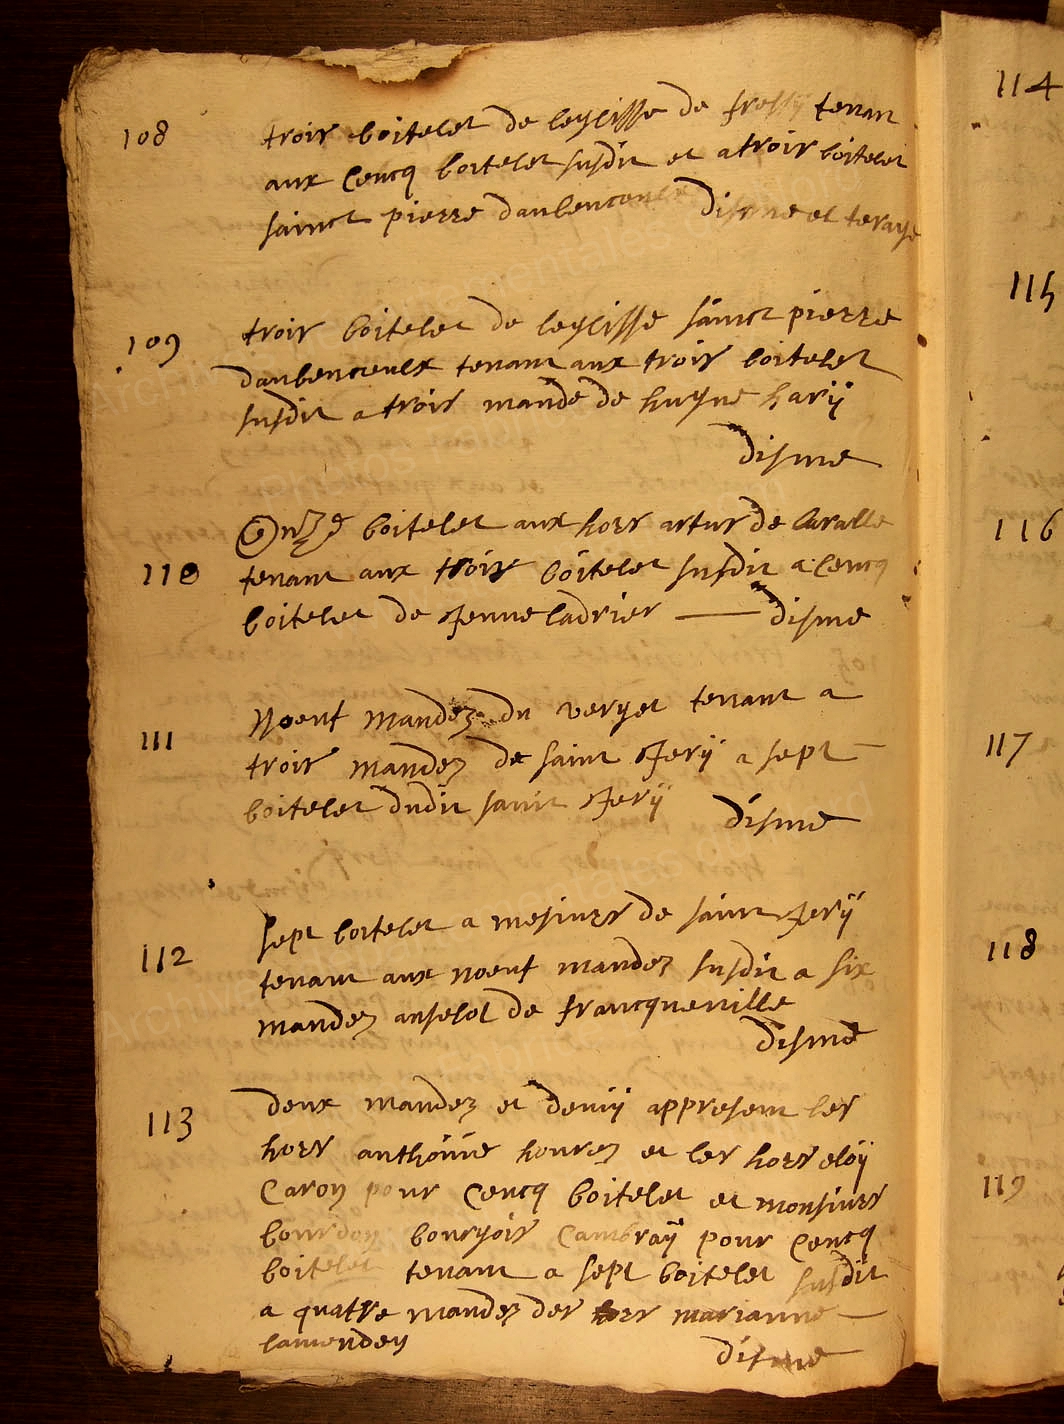 108 trois boitelet de leglisse de fressÿ tenant
aux cencq boitelet susdit et a trois boitelet
sainct pierre daubencoeulx disme et terage
109 trois boitelet de leglisse sainct pierre
daubencieulx tenant aux trois boitelet
susdit a trois mande de hugue harÿ
disme
onze boitelet aux hors artus de lavalle
110 tenant aux trois boitelet susdit a cencq
boitelet de Jenne ladrier disme
noeuf mandez du verget tenant a
111 trois mandez de saint Jerÿ a sept
boitelet dudit saint Jerÿ disme
sept boitelet a mesiurs de saint Jerÿ
112 tenant aux noeuf mandez susdit a six
mandez anselot de francqueville
disme
113 deux mandez et demÿ appresent les
hors anthoine hourez et les hors eloÿ
Caron pour cencq boitelet et monsiurs
bourdon bourgois Cambraÿ pour cencq
boitelet tenant a sept boitelet susdit
a quatre mandez des hors marianne
lamenden
disme
114
115
116
117
118
119